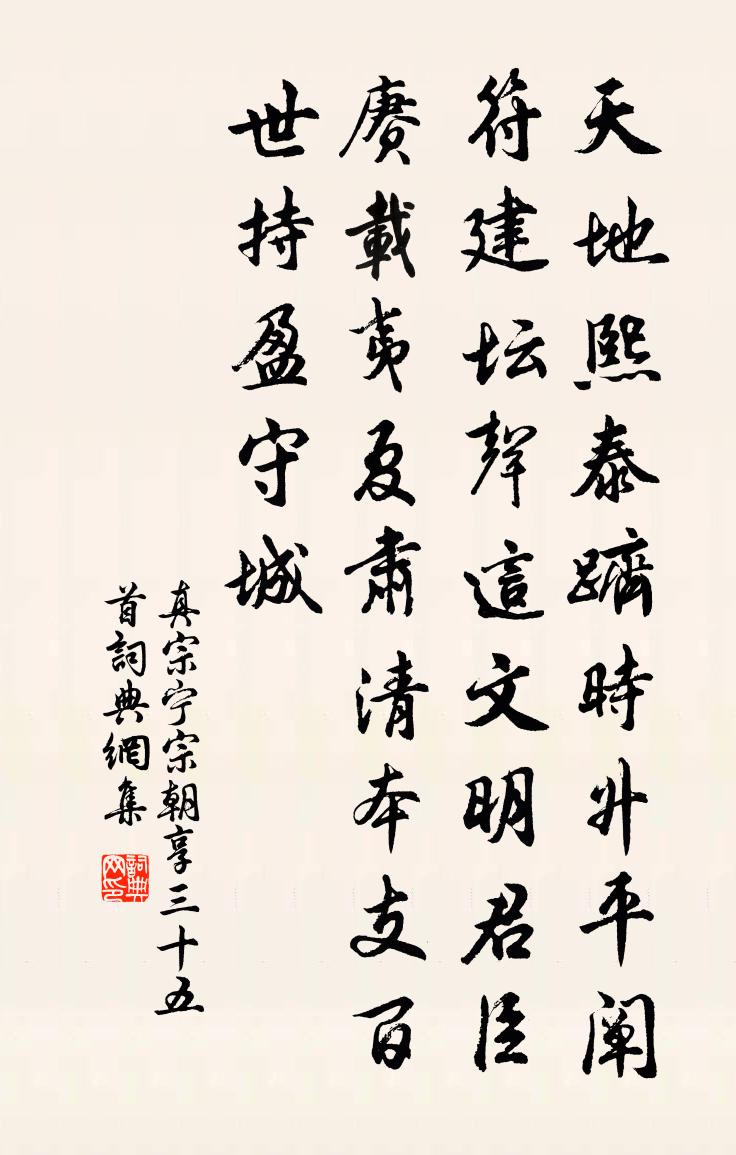 天地熙泰躋時升平阐
符建坛聲這文明君臣
赓載夷夏肅清本支百
世持盈守城
真宗宁宗朝享三十五
首詞典網集
詞典网印